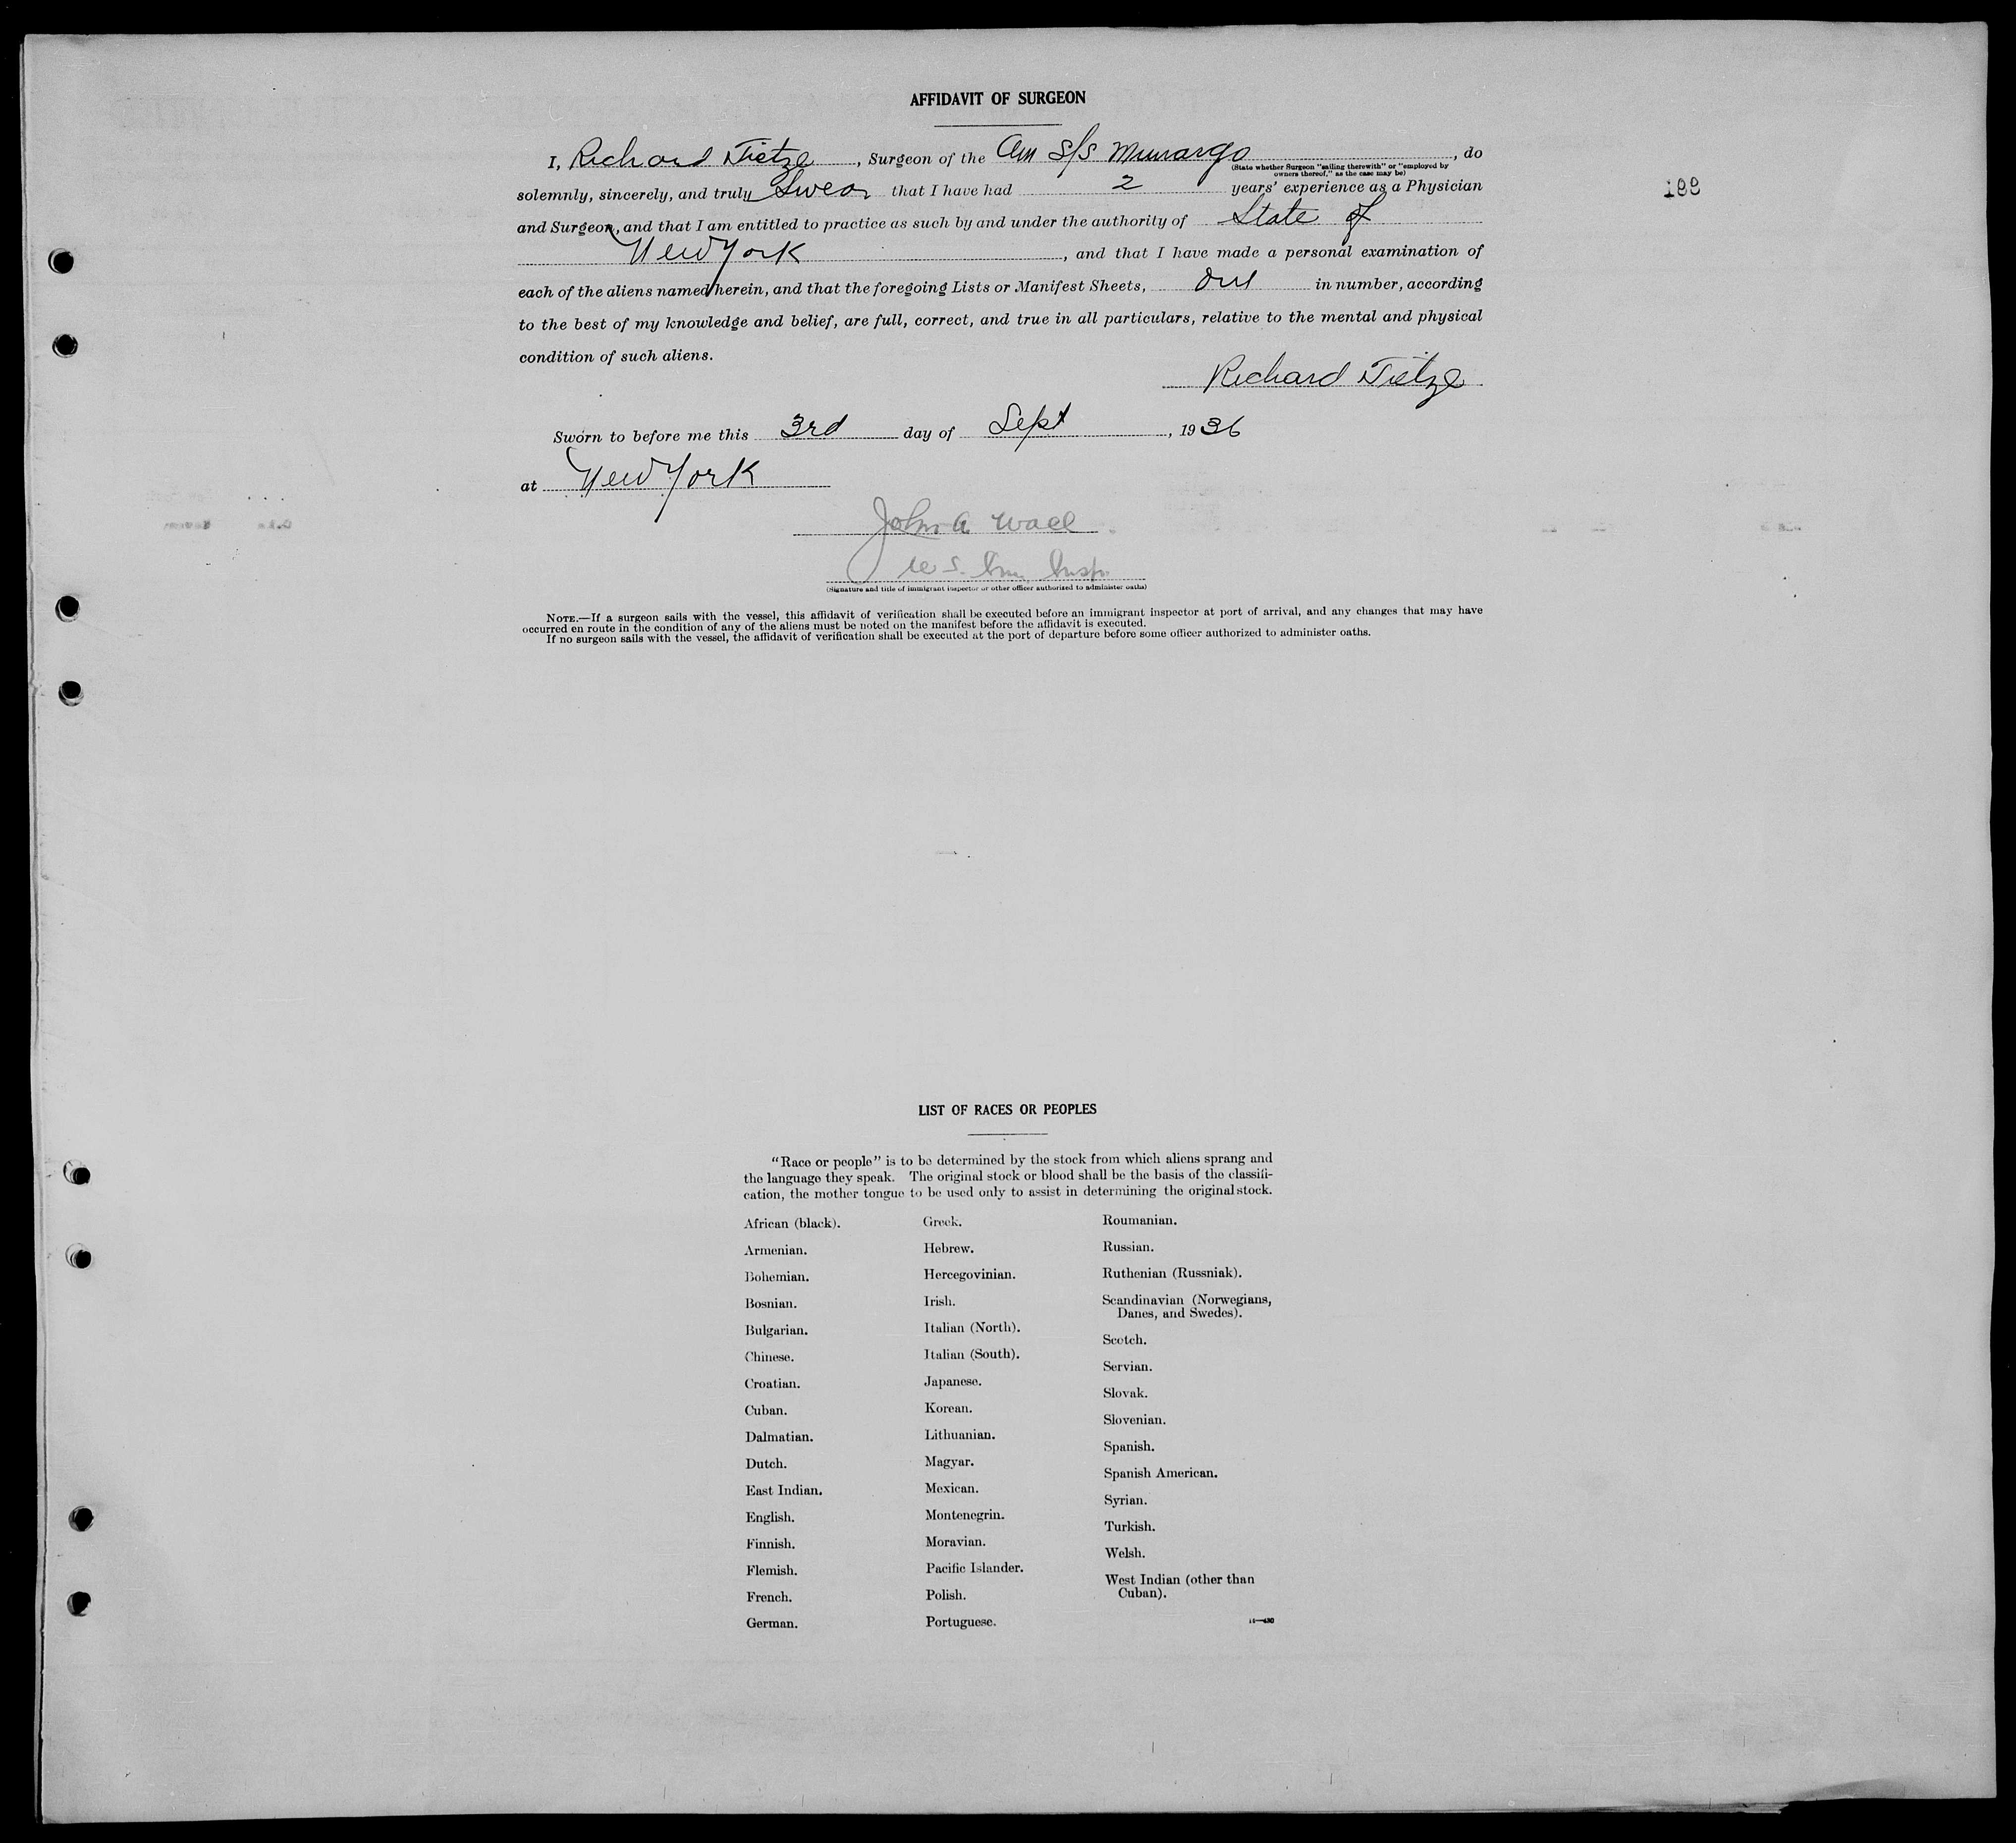 AFFIDAVIT OF SURGEON
I, Richard Tietze, Surgeon of the Am S/S Munargo, do
(State whether Surgeon "sailing therewith" or "employed by
owners thereof," as the case may be)
solemnly, sincerely, and truly Swear that I have had 2 years' experience as a Physician
188
and Surgeon, and that I am entitled to practice as such by and under the authority of State of
New York, and that I have made a personal examination of
each of the aliens named herein, and that the foregoing Lists or Manifest Sheets, one in number, according
to the best of my knowledge and belief, are full, correct, and true in all particulars, relative to the mental and physical
condition of such aliens.
Richard Tietze
Sworn to before me this 3rd day of Sept, 1936
at New York
John A Wall
U S. Imm. Insp.
(Signature and title of immigrant inspector or other officer authorized to administer oaths)
NOTE.—If a surgeon sails with the vessel, this affidavit of verification shall be executed before an immigrant inspector at port of arrival, and any changes that may have
occurred en route in the condition of any of the aliens must be noted on the manifest before the affidavit is executed.
If no surgeon sails with the vessel, the affidavit of verification shall be executed at the port of departure before some officer authorized to administer oaths.
LIST OF RACES OR PEOPLES
"Race or people" is to be determined by the stock from which aliens sprang and
the language they speak. The original stock or blood shall be the basis of the classifi-
cation, the mother tongue to be used only to assist in determining the original stock.
African (black).
Armenian.
Bohemian.
Bosnian.
Bulgarian.
Chinese.
Croatian.
Cuban.
Dalmatian.
Dutch.
East Indian.
English.
Finnish.
Flemish.
French.
German.
Greek.
Hebrew.
Hercegovinian.
Irish.
Italian (North).
Italian (South).
Japanese.
Korean.
Lithuanian.
Magyar.
Mexican.
Montenegrin.
Moravian.
Pacific Islander.
Polish.
Portuguese.
Roumanian.
Russian.
Ruthenian (Russniak).
Scandinavian (Norwegians,
Danes, and Swedes).
Scotch.
Servian.
Slovak.
Slovenian.
Spanish.
Spanish American.
Syrian.
Turkish.
Welsh.
West Indian (other than
Cuban).